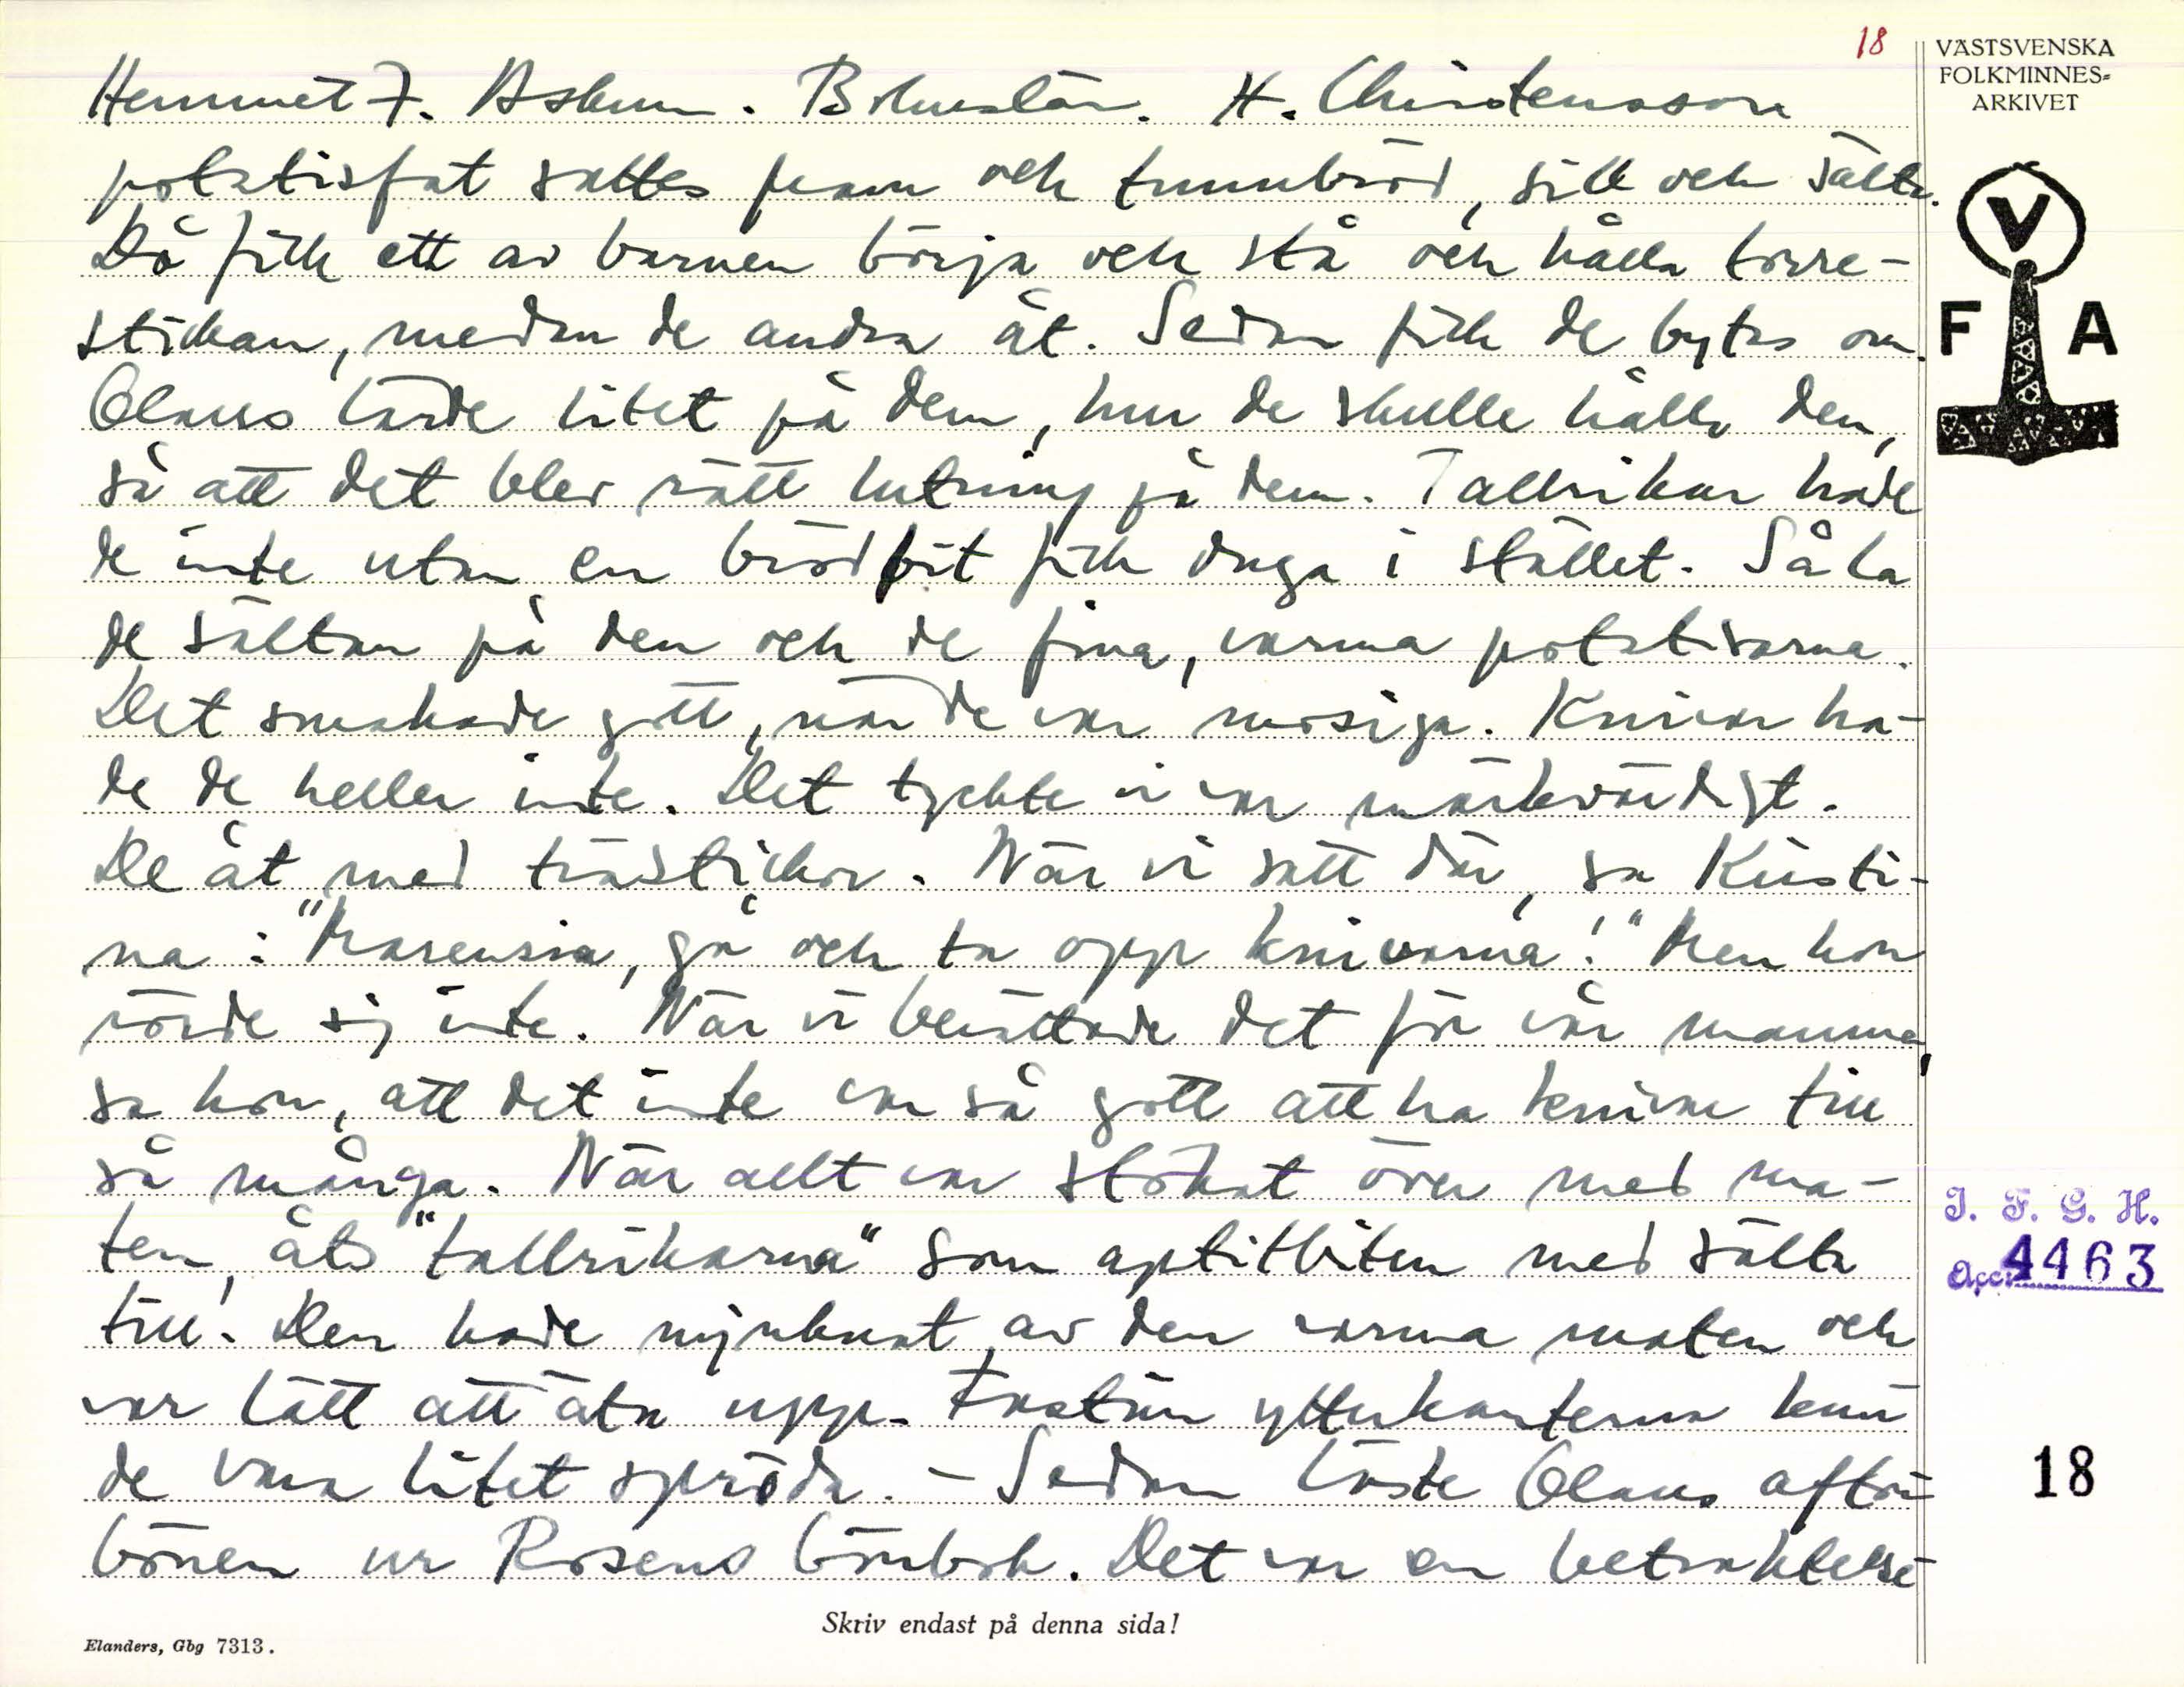 18
VÄSTSVENSKA
FOLKMINNES=
ARKIVET
V
F A
Hemmet 7. Askum. Bohuslän. H. Christensson
potatisfat sattes fram och tunnbröd, sill och sälta.
Då fick ett av barnen börja och stå och hålla törre-
stickan, medan de andra åt. Sedan fick de bytas om.
Olaus lärde litet på dem, hur de skulle hålla den,
så att det blev rätt lutning på dem. Tallrikar hade
de inte utan en brödbit fick duga i stället. Så la
de sältan på den och de fina, varma potatisarna.
Det smakade gott, när de var mosiga. Knivar ha-
de de heller inte. Det tyckte vi var märkvärdigt.
De åt med trästickor. När vi satt där, sa Kristi-
na: "Marensia, gå och ta opp knivarna!" Men hon
rörde sig inte. När vi berättade det för vår mamma,
sa hon, att det inte var så gott att ha knivar till
så många. När allt var stökat över med ma-
ten, åts "tallrikarna" som aptitbiten med sälta
till. Den hade mjuknat av den varma maten och
var lätt att äta upp. Fastän ytterkanterna kun-
de vara litet spröda. - Sedan läste Olaus afton-
bönen ur Rosens bönbok. Det var en betraktelse-
I. F. G. H.
Acc. 4463
18
Skriv endast på denna sida!
Elanders, Gbg 7313.